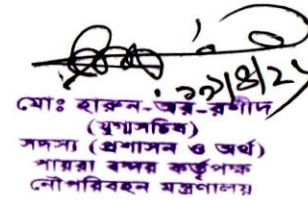 ২১/৪/২৫
মোঃ হারুন-অর-রশীদ
(যুগ্মসচিব)
সদস্য (প্রশাসন ও অর্থ)
পায়রা বন্দর কর্তৃপক্ষ
নৌপরিবহন মন্ত্রণালয়